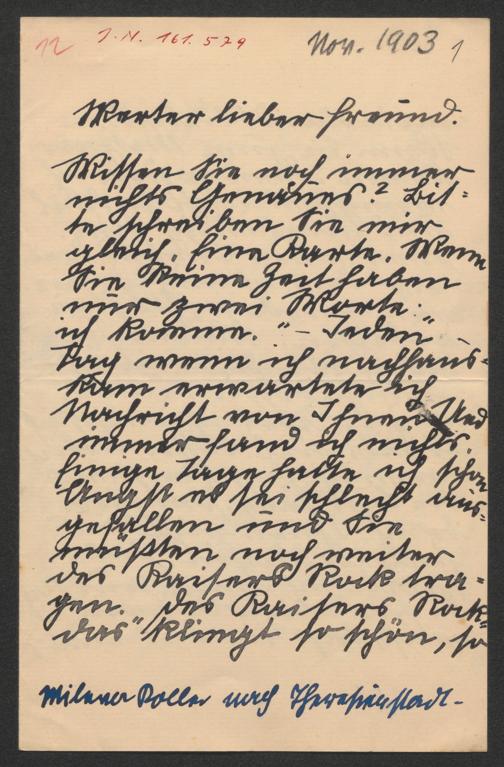 12 I.N. 161.579 Nov. 1903 1
Werter lieber Freund.
Wissen Sie noch immer
nichts Genaues? Bit-
te schreiben Sie mir
gleich. Eine Karte. Wenn
Sie keine Zeit haben
nur zwei Worte: „
ich komme." – Jeden
Tag wenn ich nachhaus-
kam erwartete ich
Nachricht von Ihnen Und
immer fand ich nichts.
Einige Tage hatte ich schon
Angst es sei schlecht aus-
gefallen und Sie
müßten noch weiter
des Kaisers Rock tra-
gen. „des Kaisers Rock"
das klingt so schön, so
Milena Roller nach Theresienstadt.-